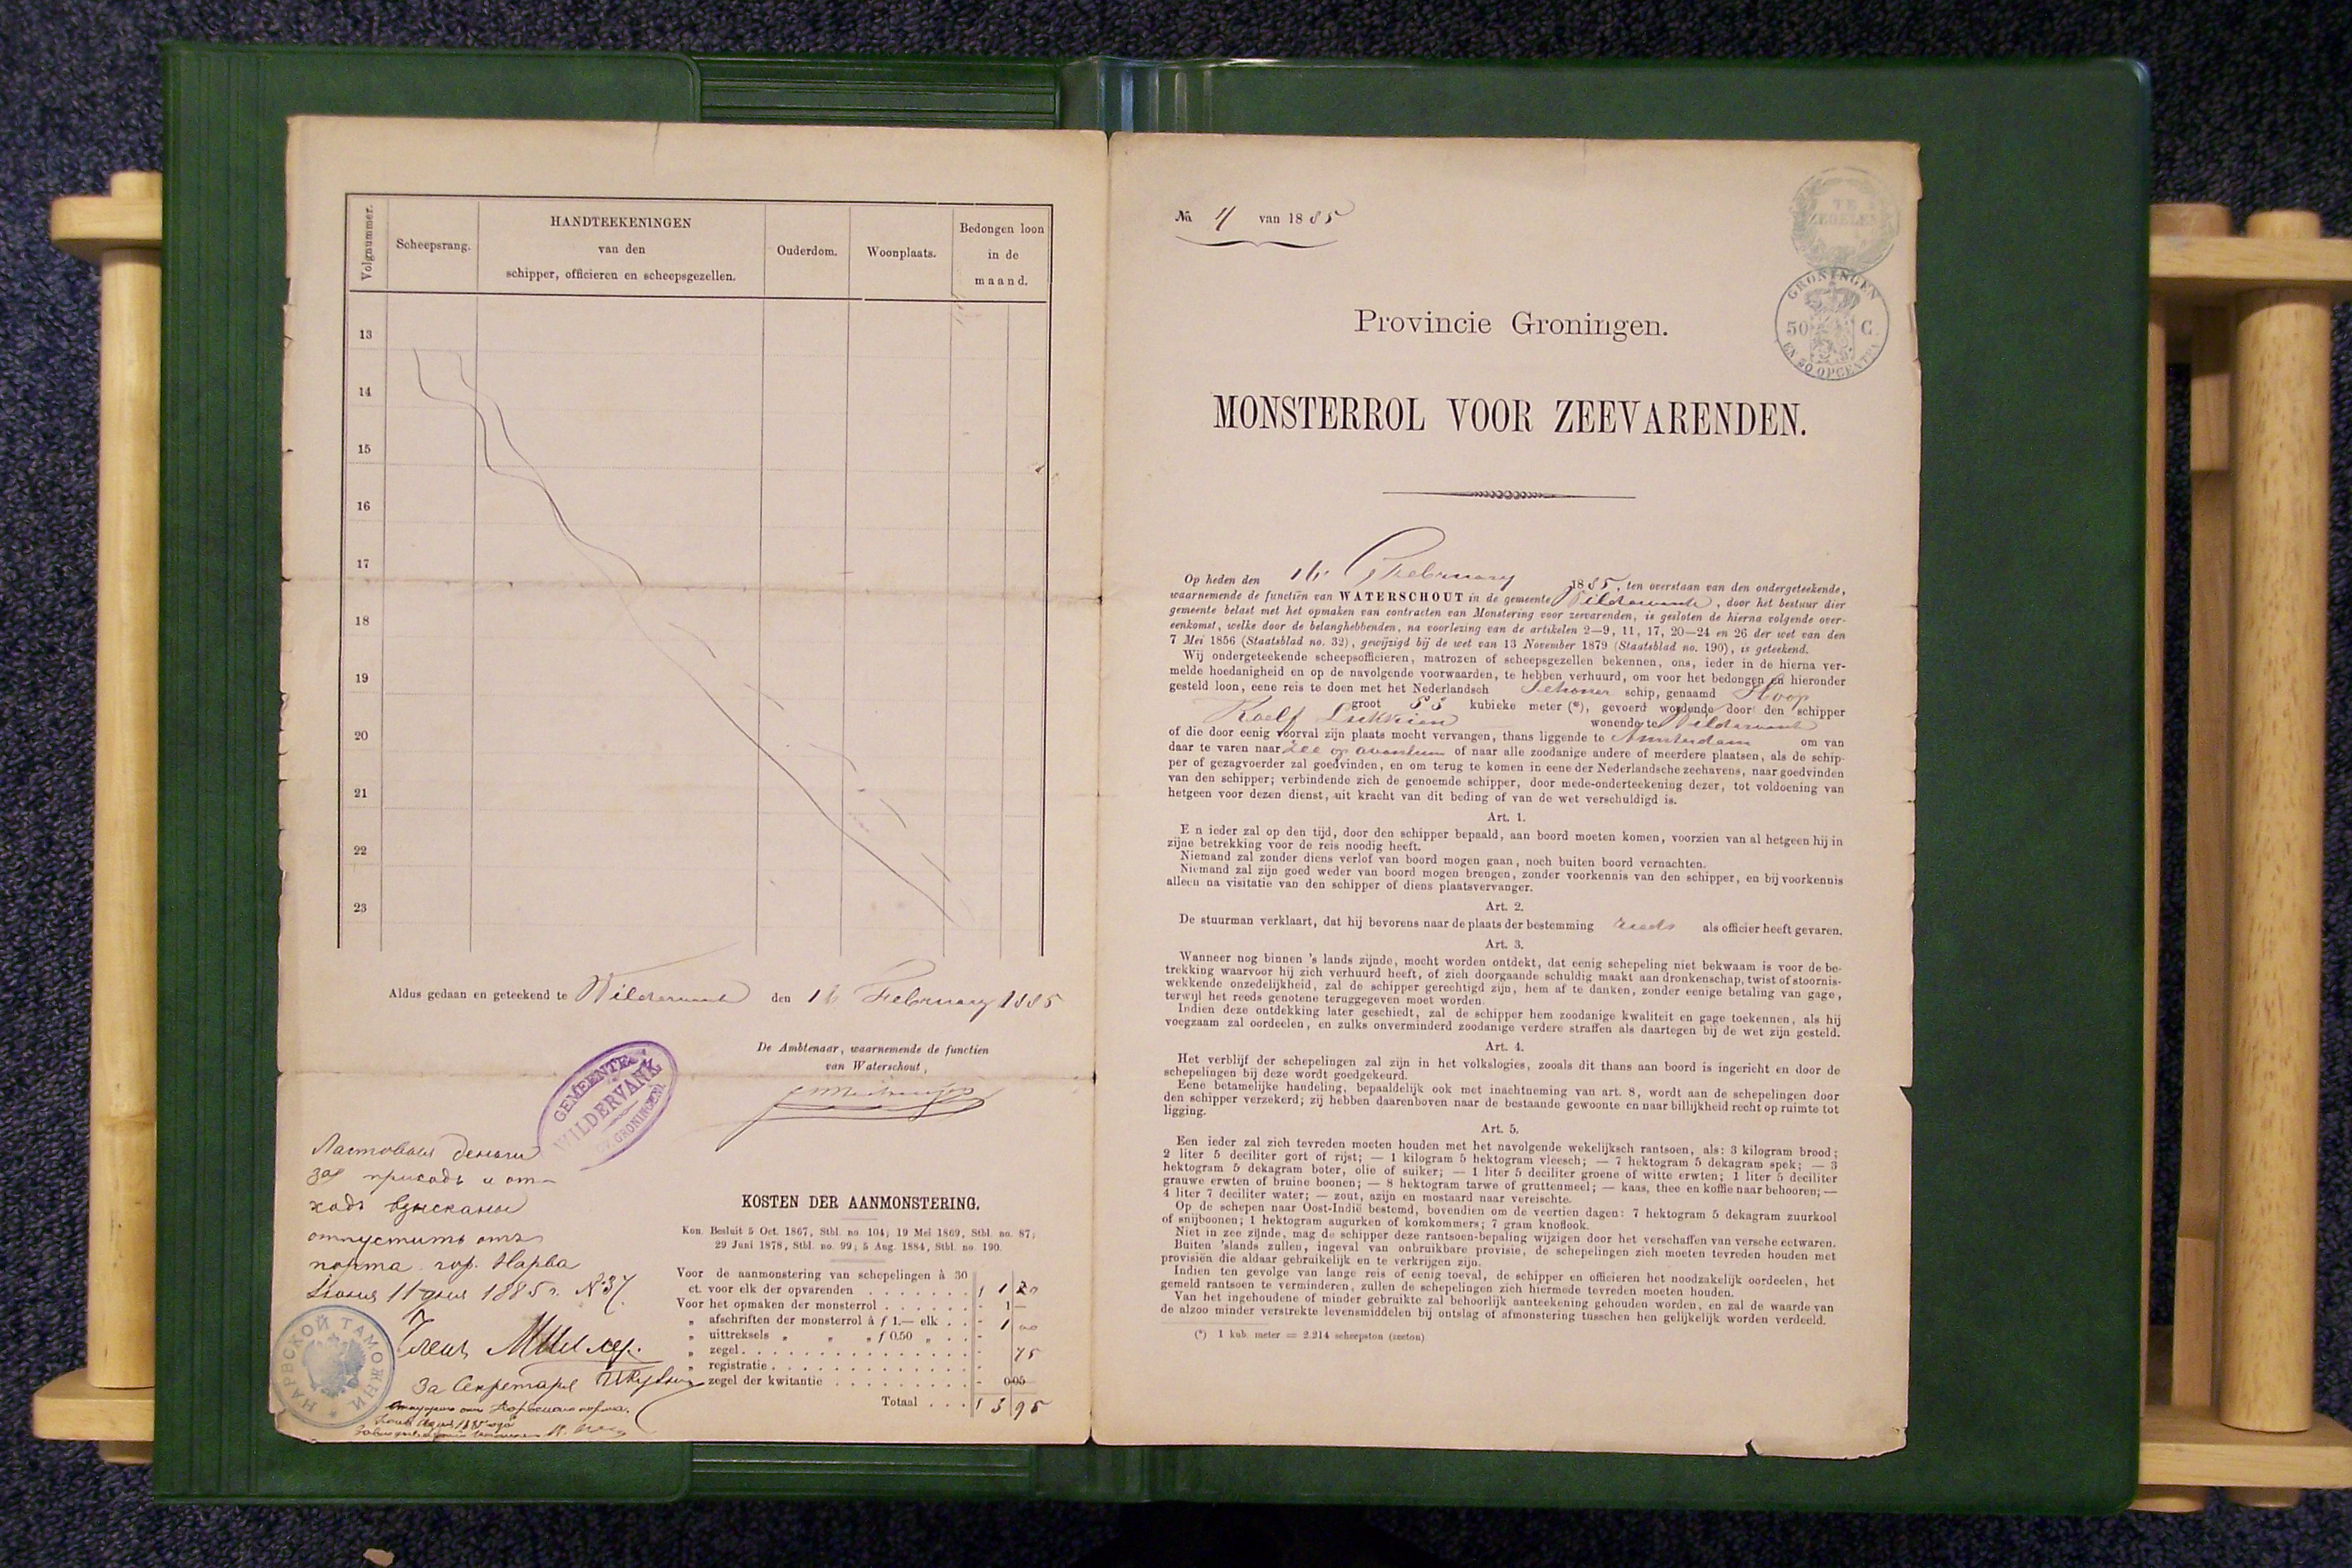 Volgnummer.
Scheepsrang.
HANDTEEKENINGEN
van den
schipper, officieren en scheepsgezellen.
Ouderdom.
Woonplaats.
Bedongen loon
in de
maand.
13
14
15
16
17
18
19
20
21
22
23
Aldus gedaan en geteekend te Wildervank den 16 February 1885
De Ambtenaar, waarnemende de functien
van Waterschout,
GEMEENTE
WILDERVANK
GRONINGEN
Ластовыя деньги
за приходъ и от-
ходъ взысканы
отпустить отъ
порта гор. Нарва
Іюня 11 дня 1885 г. № 37
Членъ Миллер.
За Секретаря
НАРВСКОЙ ТАМОЖНИ
KOSTEN DER AANMONSTERING.
Kon. Besluit 5 Oct. 1867, Stbl. no. 104; 19 Mei 1869, Stbl. no. 87;
29 Juni 1878, Stbl. no. 99; 5 Aug. 1884, Stbl. no. 190.
Voor de aanmonstering van schepelingen à 30
ct. voor elk der opvarenden . . . . . . . f 1 20
Voor het opmaken der monsterrol . . . . . . - 1 —
„ afschriften der monsterrol à f 1.— elk . . - 1 00
„ uittreksels „ „ „ f 0.50 „ . . -
„ zegel. . . . . . . . . . . . . . . . . - 75
„ registratie. . . . . . . . . . . . . . . -
„ zegel der kwitantie . . . . . . . . . . - 005
Totaal . . . f 3 95
No. 4 van 1885
TE
ZEGELEN
GRONINGEN
50 C.
EN 50 OPCENTEN
Provincie Groningen.
MONSTERROL VOOR ZEEVARENDEN.
Op heden den 16 February 1885, ten overstaan van den ondergeteekende,
waarnemende de functiën van WATERSCHOUT in de gemeente Wildervank, door het bestuur dier
gemeente belast met het opmaken van contracten van Monstering voor zeevarenden, is gesloten de hierna volgende over-
eenkomst, welke door de belanghebbenden, na voorlezing van de artikelen 2—9, 11, 17, 20—24 en 26 der wet van den
7 Mei 1856 (Staatsblad no. 32), gewijzigd bij de wet van 13 November 1879 (Staatsblad no. 190), is geteekend.
Wij ondergeteekende scheepsofficieren, matrozen of scheepsgezellen bekennen, ons, ieder in de hierna ver-
melde hoedanigheid en op de navolgende voorwaarden, te hebben verhuurd, om voor het bedongen en hieronder
gesteld loon, eene reis te doen met het Nederlandsch Schoner schip, genaamd Hoop
groot 83 kubieke meter (*), gevoerd wordende door den schipper
Roelf Lukkien wonende te Wildervank
of die door eenig voorval zijn plaats mocht vervangen, thans liggende te Amsterdam om van
daar te varen naar Zee op avontuur of naar alle zoodanige andere of meerdere plaatsen, als de schip-
per of gezagvoerder zal goedvinden, en om terug te komen in eene der Nederlandsche zeehavens, naar goedvinden
van den schipper; verbindende zich de genoemde schipper, door mede-onderteekening dezer, tot voldoening van
hetgeen voor dezen dienst, uit kracht van dit beding of van de wet verschuldigd is.
Art. 1.
E n ieder zal op den tijd, door den schipper bepaald, aan boord moeten komen, voorzien van al hetgeen hij in
zijne betrekking voor de reis noodig heeft.
Niemand zal zonder diens verlof van boord mogen gaan, noch buiten boord vernachten.
Niemand zal zijn goed weder van boord mogen brengen, zonder voorkennis van den schipper, en bij voorkennis
alleen na visitatie van den schipper of diens plaatsvervanger.
Art. 2.
De stuurman verklaart, dat hij bevorens naar de plaats der bestemming reeds als officier heeft gevaren.
Art. 3.
Wanneer nog binnen 's lands zijnde, mocht worden ontdekt, dat eenig schepeling niet bekwaam is voor de be-
trekking waarvoor hij zich verhuurd heeft, of zich doorgaande schuldig maakt aan dronkenschap, twist of stoornis-
wekkende onzedelijkheid, zal de schipper gerechtigd zijn, hem af te danken, zonder eenige betaling van gage,
terwijl het reeds genotene teruggegeven moet worden.
Indien deze ontdekking later geschiedt, zal de schipper hem zoodanige kwaliteit en gage toekennen, als hij
voegzaam zal oordeelen, en zulks onverminderd zoodanige verdere straffen als daartegen bij de wet zijn gesteld.
Art. 4.
Het verblijf der schepelingen zal zijn in het volkslogies, zooals dit thans aan boord is ingericht en door de
schepelingen bij deze wordt goedgekeurd.
Eene betamelijke handeling, bepaaldelijk ook met inachtneming van art. 8, wordt aan de schepelingen door
den schipper verzekerd; zij hebben daarenboven naar de bestaande gewoonte en naar billijkheid recht op ruimte tot
ligging.
Art. 5.
Een ieder zal zich tevreden moeten houden met het navolgende wekelijksch rantsoen, als: 3 kilogram brood;
2 liter 5 deciliter gort of rijst; — 1 kilogram 5 hektogram vleesch; — 7 hektogram 5 dekagram spek; — 3
hektogram 5 dekagram boter, olie of suiker; — 1 liter 5 deciliter groene of witte erwten; 1 liter 5 deciliter
grauwe erwten of bruine boonen; — 8 hektogram tarwe of gruttenmeel; — kaas, thee en koffie naar behooren; —
4 liter 7 deciliter water; — zout, azijn en mostaard naar vereischte.
Op de schepen naar Oost-Indië bestemd, bovendien om de veertien dagen: 7 hektogram 5 dekagram zuurkool
of snijboonen; 1 hektogram augurken of komkommers; 7 gram knoflook.
Niet in zee zijnde, mag de schipper deze rantsoen-bepaling wijzigen door het verschaffen van versche eetwaren.
Buiten 'slands zullen, ingeval van onbruikbare provisie, de schepelingen zich moeten tevreden houden met
provisiën die aldaar gebruikelijk en te verkrijgen zijn.
Indien ten gevolge van lange reis of eenig toeval, de schipper en officieren het noodzakelijk oordeelen, het
gemeld rantsoen te verminderen, zullen de schepelingen zich hiermede tevreden moeten houden.
Van het ingehoudene of minder gebruikte zal behoorlijk aanteekening gehouden worden, en zal de waarde van
de alzoo minder verstrekte levensmiddelen bij ontslag of afmonstering tusschen hen gelijkelijk worden verdeeld.
(*) 1 kub. meter = 2.214 scheepston (zeeton)